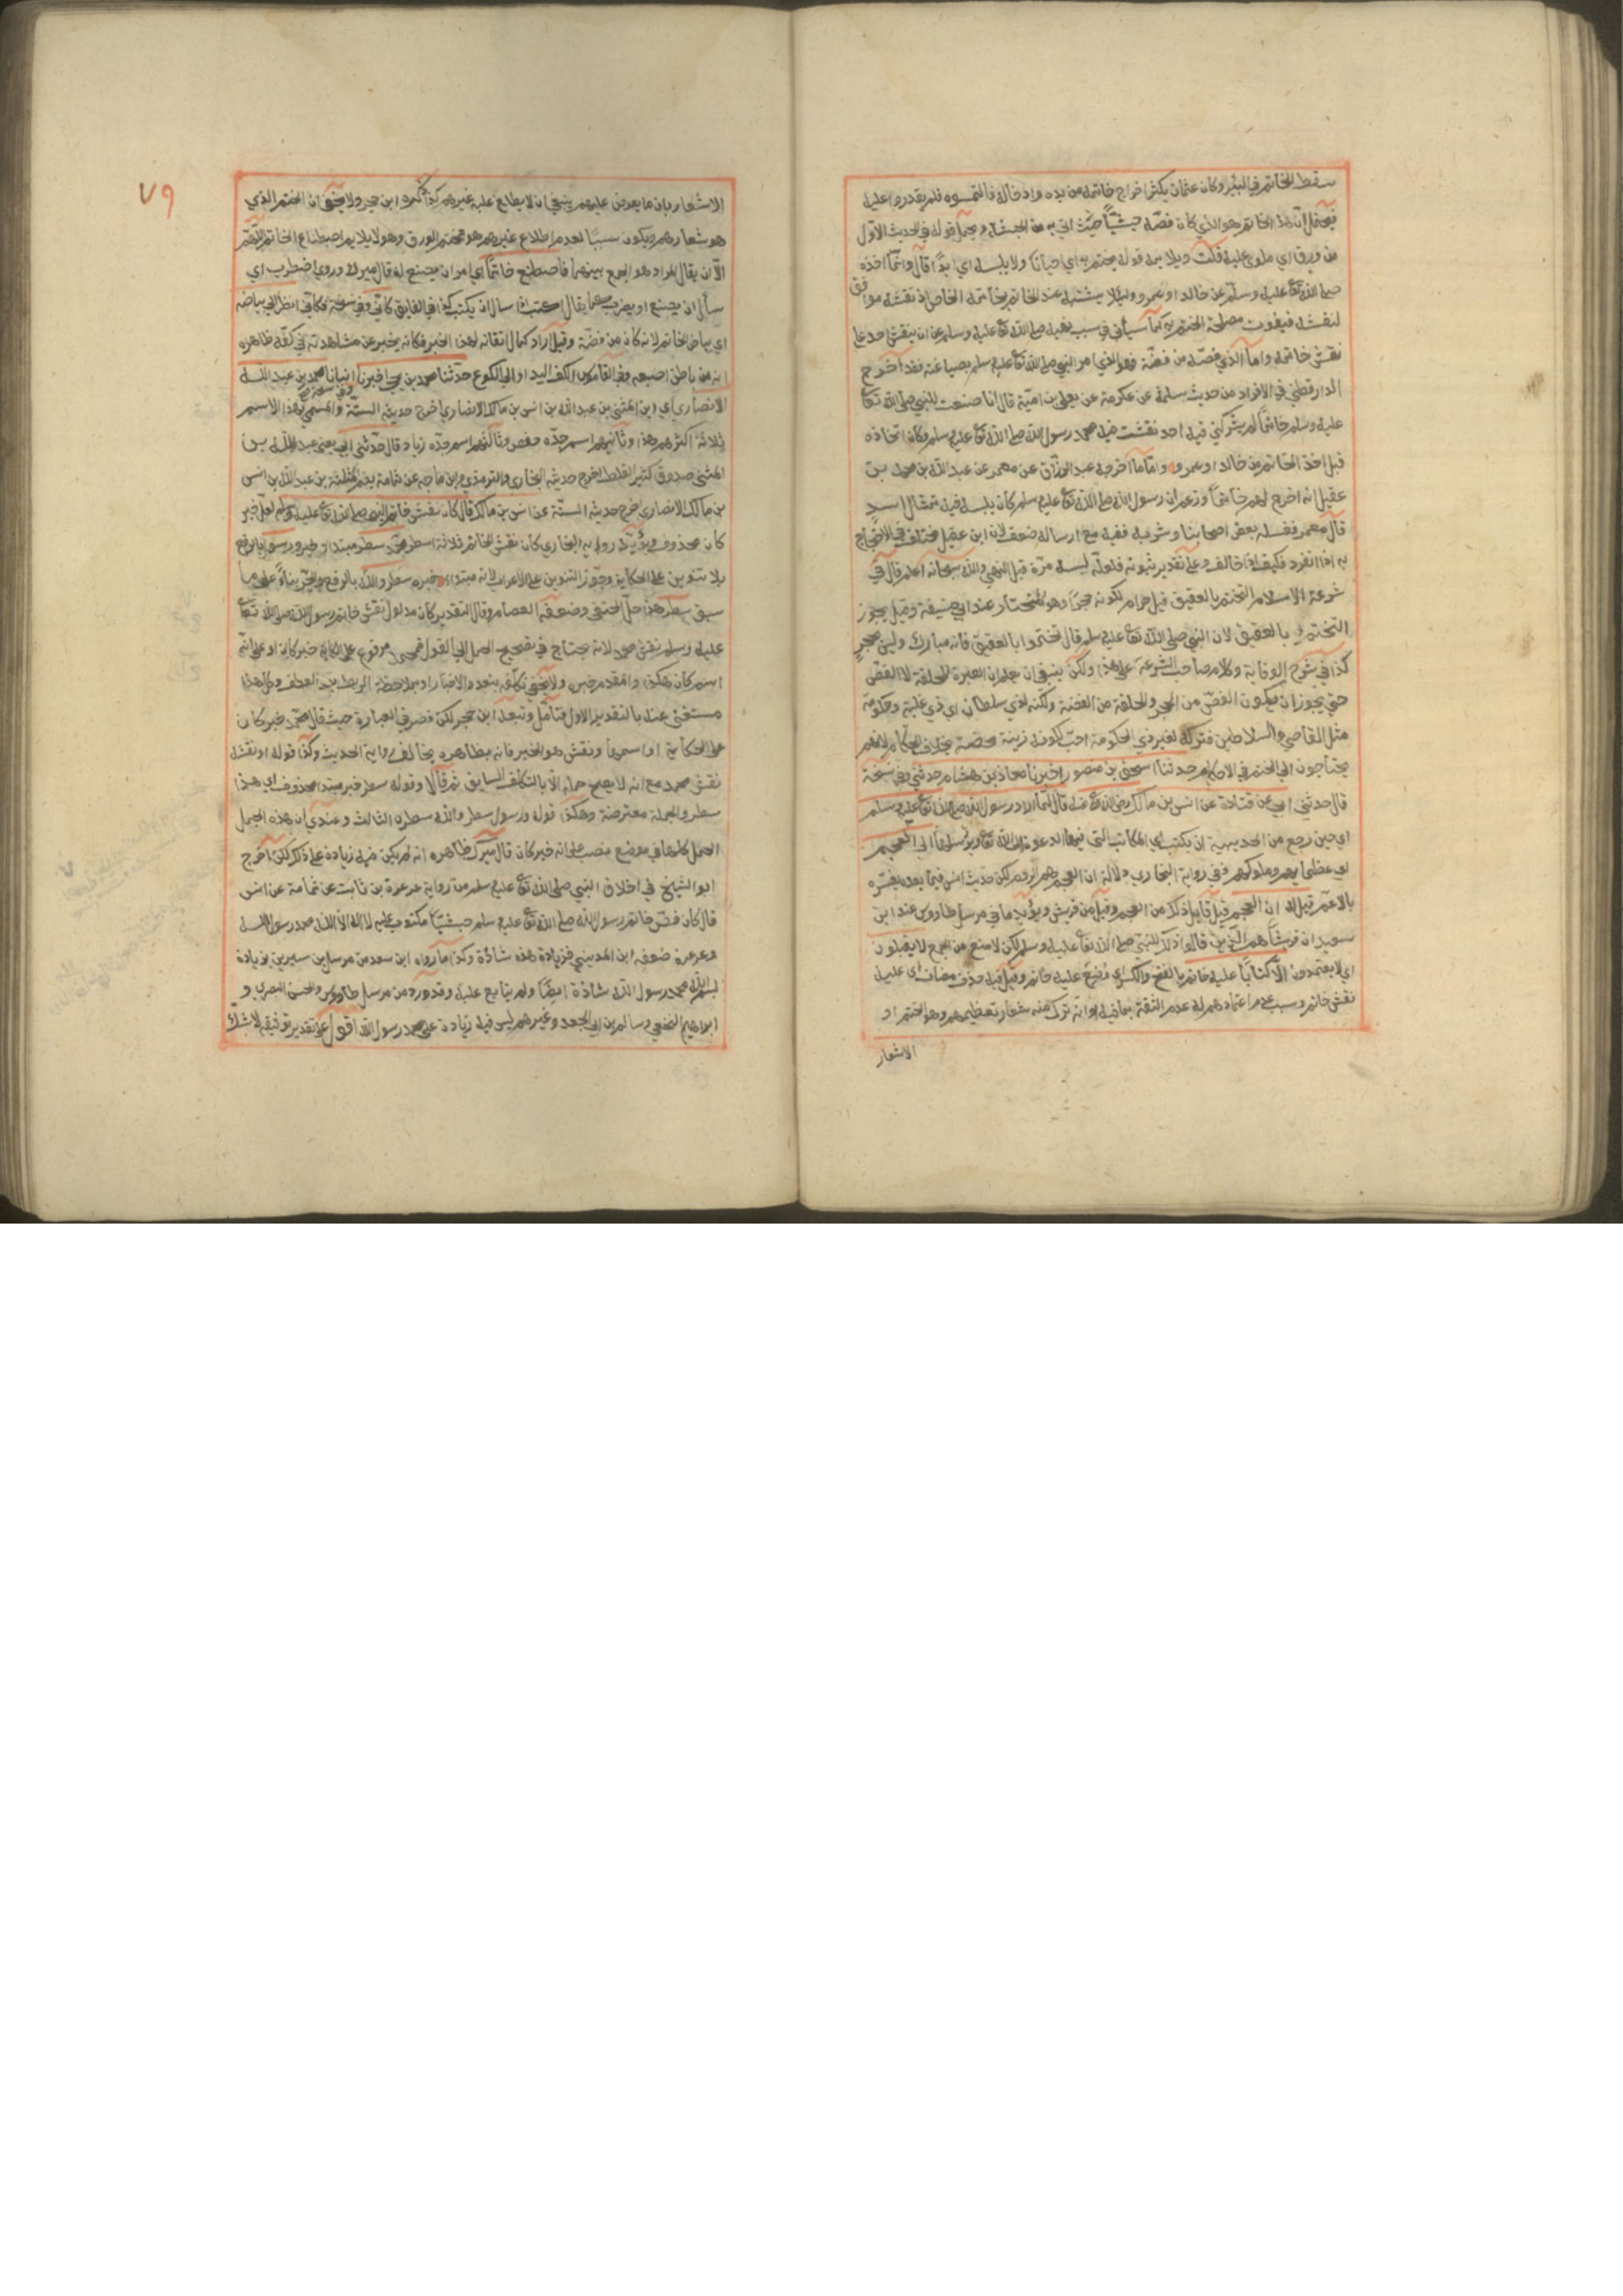 سقط الخاتم في البئر وكان عثمان يكثر اخراج خاتمه من يده وادخاله فالتمسوه فلم يقدروا عليه
فيحتمل ان هذا الخاتم هو الذي كان فصه حبشيا حيث اتي به من الحبشة ويحمل قوله في الحديث الاول
من ورق اي ملوي عليه قلت ويلايمه قوله يختم به اي احيانا ولا يلبسه اي ابدا قال وانما اخذه
صلى الله تع عليه وسلم عن خالد او عمرو ولئلا يشتبه عند الخاتم بخاتمه الخاص اذ نقشه موافق
لنقشه فيفوت مصلحة الختم به كما سيأتي في سبب نهيه صلى الله تع عليه وسلم عن ان ينقش احد على
نقش خاتمه واما الذي فصه من فضة فهو الذي امر النبي صلى الله تع عليه وسلم بصياغته فقد اخرج
الدارقطني في الافراد من حديث سلمة عن عكرمة عن يعلى بن امية قال انا صنعت للنبي صلى الله تعا
عليه وسلم خاتما لم يشركني فيه احد نقشت فيه محمد رسول الله صلى الله تع عليه وسلم وكان اتخاذه
قبل اخذ الخاتم من خالد او عمرو واما ما اخرجه عبد الرزاق عن معمر عن عبد الله بن محمد بن
عقيل انه اخرج لهم خاتما وزعم ان رسول الله صلى الله تع عليه وسلم كان يلبسه فيه تمثال اسد
قال معمر فغسله بعض اصحابنا وشربه ففيه مع ارساله ضعف لان ابن عقيل مختلف في الاحتجاج
به اذا انفرد فكيف اذا خالف وعلى تقدير ثبوته فلعله لبسه مرة قبل النهي والله سبحانه اعلم قال في
شرعة الاسلام التختم بالعقيق قيل حرام لكونه حجرا وهو المختار عند ابي حنيفة وقيل يجوز
التختم بالعقيق لان النبي صلى الله تع عليه وسلم قال تختموا بالعقيق فانه مبارك وليس بحجر
كذا في شرح الوقاية وكلام صاحب الشرعة على هذا ولكن ينبغي ان يعلم ان العبرة للحلقة لا الفص
حتى يجوز ان يكون الفص من الحجر والحلقة من الفضة ولكنه لذي سلطان اي ذي غلبة وحكومة
مثل القاضي والسلاطين فتركه لغير ذي الحكومة احب لكونه زينة محضة بخلاف الحكام لانهم
يحتاجون الى الختم في الاحكام حدثنا اسحق بن منصور اخبرنا معاذ بن هشام حدثني وفي نسخة
قال حدثني ابي عن قتادة عن انس بن مالك رضي الله تع عنه قال لما اراد رسول الله صلى الله تع عليه وسلم
اي حين رجع من الحديبية ان يكتب اي المكاتيب التي فيها الدعوة الى الله تع ويرسلها الى العجم
اي عظمائهم وملوكهم وفي رواية البخاري دلالة ان العجم هم الروم لكن حديث انس فيما بعد يفسره
بالاعم قيل له ان العجم قيل قايل ذلك من العجم وقيل من قريش ويؤيد ما في مرسل طاووس عند ابن
سعد ان قريشا هم الذين قالوا ذلك للنبي صلى الله تع عليه وسلم لكن لا منع من الجمع لا يقبلون
اي لا يعتمدون الا كتابا عليه خاتم بالفتح والكسر اي وضع عليه خاتم وقيل فيه حذف مضاف اي عليه
نقش خاتم وسبب عدم اعتمادهم له عدم الثقة بما فيه او انه ترك منه شعار تعظيمهم وهو الختم او
الاشعار
٧٩
الاشعار بان ما يعرض عليهم ينبغي ان لا يطلع عليه غيرهم كذا ذكره ابن حجر ولا يخفى ان الختم الذي
هو شعارهم ويكون سببا لعدم اطلاع غيرهم هو ختم الورق وهو لا يلايم اصطناع الخاتم
الا ان يقال المراد هو الجمع بينهما فاصطنع خاتما اي امر ان يصنع له قال ميرك وروي اضطرب اي
سأل ان يصنع او يضرب كما يقال اكتتب اي سأل ان يكتب كذا في الفايق كاني وفي نسخة فكاني انظر الى بياضه
اي بياض الخاتم لانه كان من فضة وقيل اراد كمال اتقانه لهذا الخبر فكانه يخبر عن مشاهدته في كفه ظاهره
انه من باطن اصبعه وفي القاموس الكف اليد او الى الكوع حدثنا محمد بن يحيى اخبرنا انبانا محمد بن عبد الله
الانصاري اي ابن المثنى بن عبد الله بن انس بن مالك الانصاري اخرج حديثه الستة والمسمى بهذا الاسم
ثلاثة اكثرهم هذا وثانيهم اسم جده حفص وثالثهم اسم جده زياد قال حدثني ابي يعني عبد الله بن
المثنى صدوق كثير الغلط اخرج حديثه البخاري والترمذي وابن ماجه عن ثمامة بضم المثلثة بن عبد الله بن انس
بن مالك الانصاري اخرج حديثه الستة عن انس بن مالك قال كان نقش خاتم النبي صلى الله تع عليه وسلم لعل خبر
كان محذوف ويؤيده رواية البخاري كان نقش الخاتم ثلاثة اسطر محمد سطر مبتدا وخبر ورسول بالرفع
بلا تنوين على الحكاية وجوز التنوين على الاعراب لانه مبتدا خبره سطر والله بالرفع والجر بناء على ما
سبق سطر هذا حل الحنفي وضعفه العصام وقال التقدير كان مدلول نقش خاتم رسول الله صلى الله تعا
عليه وسلم نقش محمد لانه يحتاج في تصحيح الحمل الى القول فمحمد مرفوع على الحكاية خبر كان او على انه
اسم كان هكذا والمقدم خبره ولا يخفى تكلفه بتعدد الاخبار او بملاحظة الربط بعد العطف وكل هذا
مستغنى عنه بالتقدير الاول فتأمل وتبعه ابن حجر لكن قصر في العبارة حيث قال محمد خبر كان
على الحكاية او اسمها ونقش هو الخبر فانه بظاهره يخالف رواية الحديث وكذا قوله او نقشه
نقش محمد مع انه لا يصح حمله الا بالتكلف السابق ثم قال وقوله سطر خبر مبتدا محذوف اي هذا
سطر والجملة معترضة وهكذا قوله ورسول سطر والله سطره الثالث وعندي ان هذه الجمل
الجمل كلها في موضع نصب على انه خبر كان قال ميرك ظاهره انه لم يكن فيه زيادة على ذلك لكن اخرج
ابو الشيخ في اخلاق النبي صلى الله تع عليه وسلم من رواية عرعرة بن ثابت عن ثمامة عن انس
قال كان فص خاتم رسول الله صلى الله تع عليه وسلم حبشيا مكتوب عليه لا اله الا الله محمد رسول الله
وعرعرة ضعفه ابن المديني فزيادة هذه شاذة وكذا ما رواه ابن سعد من مرسل ابن سيرين بزيادة
بسم الله محمد رسول الله شاذة ايضا ولم يتابع عليه وقد ورد من مرسل طاووس والحسن البصري و
ابراهيم النخعي وسالم بن ابي الجعد وغيرهم ليس فيه زيادة على محمد رسول الله اقول على تقدير توثيقه لا شك